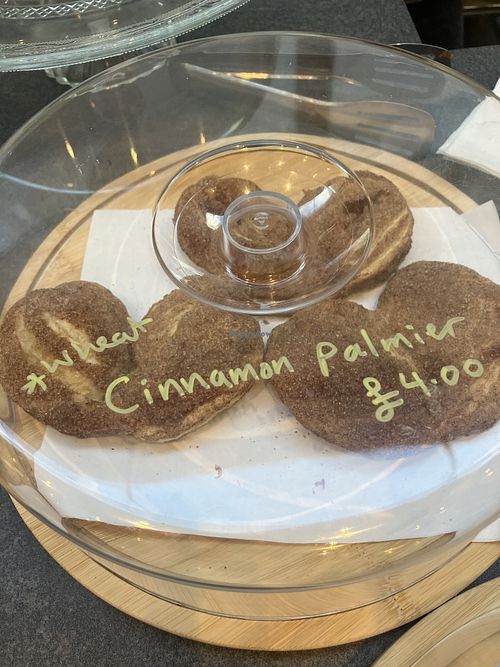 *wheat
Cinnamon Palmier
£4.00